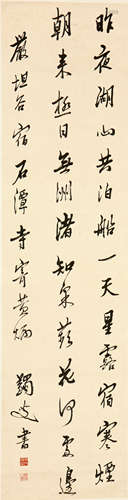 昨夜湖山共泊船一天星露宿寒煙
朝来極目無洲渚知蘋花何處邊
嚴坦谷宿石潭寺寄黄炳
書